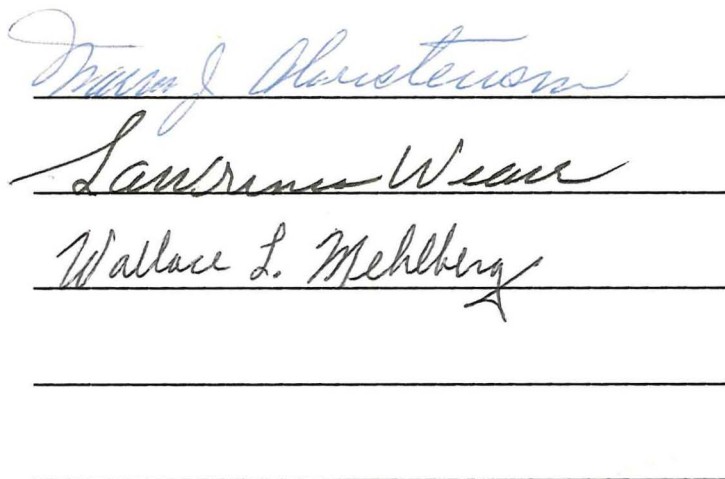 J Christenson
Lawrence Weaver
Wallace L. Mehlberg